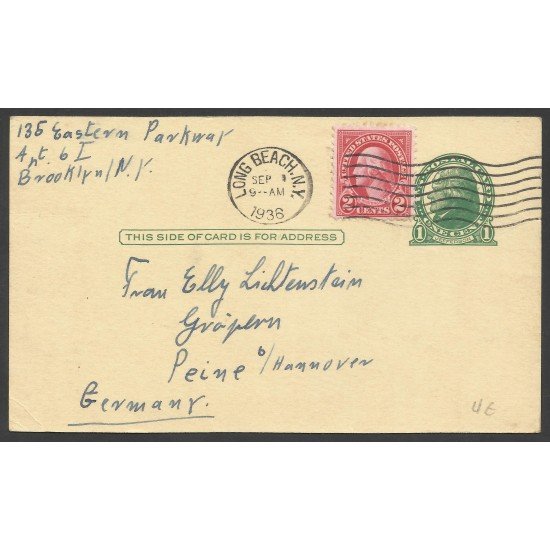 135 Eastern Parkway
Apt. 6 I
Brooklyn/N.Y.
LONG BEACH, N.Y.
SEP
9--AM
1936
UNITED STATES POSTAGE
2 CENTS 2
1 1
THIS SIDE OF CARD IS FOR ADDRESS
Frau Elly Lichtenstein
Peine b/Hannover
Germany.